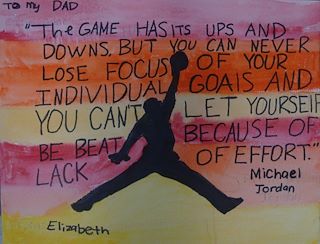 To my DAD
"The GAME HAS ITS UPS AND
DOWNS, BUT YOU CAN NEVER
LOSE FOCUS OF YOUR
INDIVIDUAL GOALS AND
YOU CAN'T LET YOURSELF
BE BEAT BECAUSE OF
LACK OF EFFORT."
Michael
Jordan
Elizabeth